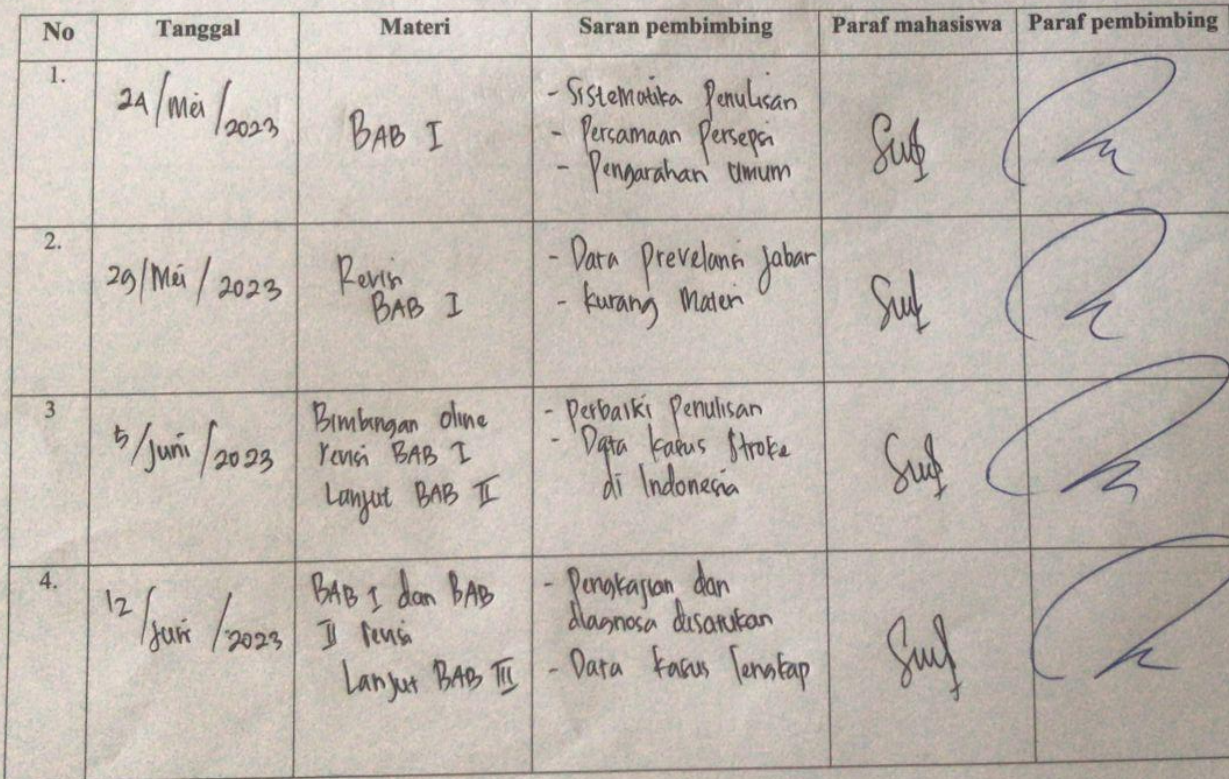 No Tanggal Materi Saran pembimbing Paraf mahasiswa Paraf pembimbing
1.
24/Mei/2023
BAB I
- Sistematika Penulisan
- Persamaan Persepsi
- Pengarahan Umum
2.
29/Mei/2023
Revisi
BAB I
- Data Prevelansi Jabar
- Kurang Materi
3
5/Juni/2023
Bimbingan oline
revisi BAB I
Lanjut BAB II
- Perbaiki Penulisan
- Data Kasus Stroke
di Indonesia
4.
12/Juni/2023
BAB I dan BAB
II revisi
Lanjut BAB III
- Pengkajian dan
diagnosa disatukan
- Data Kasus lengkap